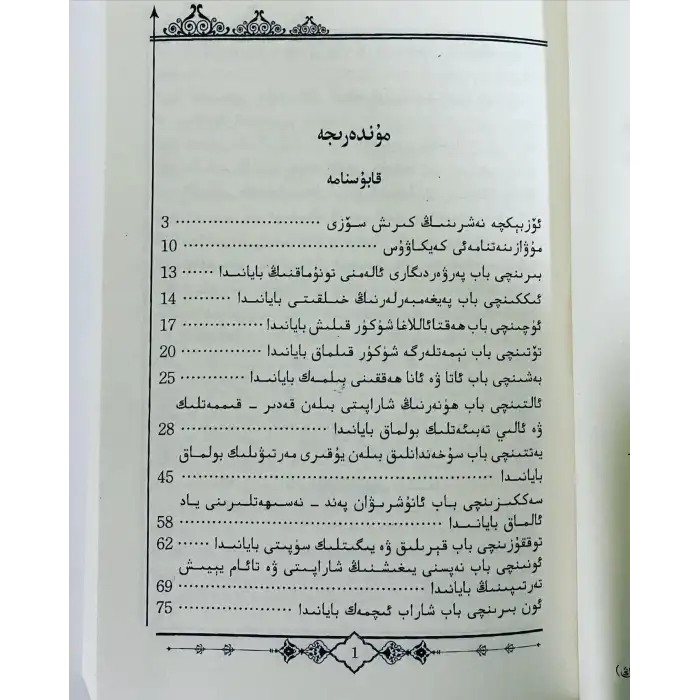 مۇندەرىجە
قابۇسنامە
ئۆزبېكچە نەشرىنىڭ كىرىش سۆزى ⋯⋯⋯⋯⋯⋯⋯⋯⋯ 3
مۇۋازىنەتنامەئى كەيكاۋۇس ⋯⋯⋯⋯⋯⋯⋯⋯⋯ 10
بىرىنچى باب پەرۋەردىگارى ئالەمنى تونۇماقنىڭ بايانىدا ⋯⋯ 13
ئىككىنچى باب پەيغەمبەرلەرنىڭ خىلقىتى بايانىدا ⋯⋯⋯ 14
ئۈچىنچى باب ھەقتائاللاغا شۈكۈر قىلىش بايانىدا ⋯⋯⋯⋯ 17
تۆتىنچى باب نېمەتلەرگە شۈكۈر قىلماق بايانىدا ⋯⋯⋯⋯ 20
بەشىنچى باب ئاتا ۋە ئانا ھەققىنى بىلمەك بايانىدا ⋯⋯⋯⋯ 25
ئالتىنچى باب ھۈنەرنىڭ شاراپىتى بىلەن قەدىر – قىممەتلىك
ۋە ئالىي تەبىئەتلىك بولماق بايانىدا ⋯⋯⋯⋯⋯⋯⋯ 28
يەتتىنچى باب سۇخەندانلىق بىلەن يۇقىرى مەرتىۋىلىك بولماق
بايانىدا ⋯⋯⋯⋯⋯⋯⋯⋯⋯⋯⋯⋯⋯ 45
سەككىزىنچى باب ئانۇشىرىۋان پەند – نەسىھەتلىرىنى ياد
ئالماق بايانىدا ⋯⋯⋯⋯⋯⋯⋯⋯⋯⋯⋯⋯ 58
توققۇزىنچى باب قېرىلىق ۋە يىگىتلىك سۈپىتى بايانىدا ⋯⋯ 62
ئونىنچى باب نەپسنى يىغىشنىڭ شاراپىتى ۋە تائام يېيىش
تەرتىپىنىڭ بايانىدا ⋯⋯⋯⋯⋯⋯⋯⋯⋯⋯⋯ 69
ئون بىرىنچى باب شاراب ئىچمەك بايانىدا ⋯⋯⋯⋯⋯⋯ 75
1